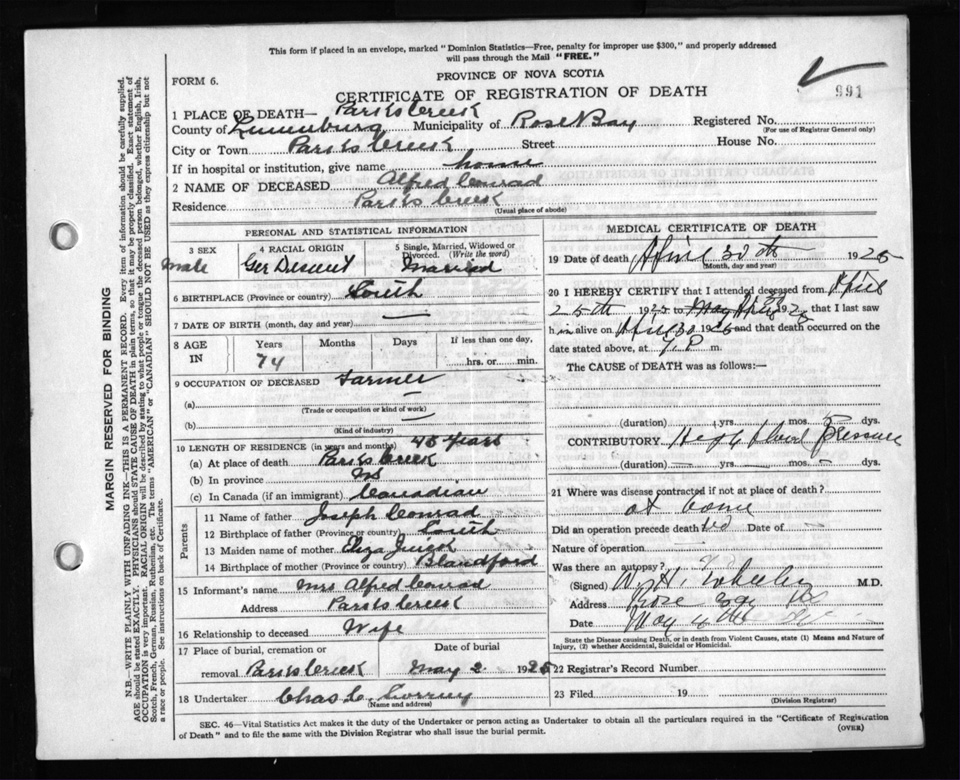 This form if placed in an envelope, marked "Dominion Statistics—Free, penalty for improper use $300," and properly addressed
will pass through the Mail "FREE."
FORM 6.
PROVINCE OF NOVA SCOTIA
991
CERTIFICATE OF REGISTRATION OF DEATH
1 PLACE OF DEATH— Parks Creek
County of Lunenburg Municipality of Rose Bay Registered No.
(For use of Registrar General only)
City or Town Parks Creek Street House No.
If in hospital or institution, give name home
2 NAME OF DECEASED Alfred Conrad
Residence Parks Creek
(Usual place of abode)
MARGIN RESERVED FOR BINDING
N.B.—WRITE PLAINLY WITH UNFADING INK—THIS IS A PERMANENT RECORD. Every item of information should be carefully supplied.
AGE should be stated EXACTLY. PHYSICIANS should STATE CAUSE OF DEATH in plain terms, so that it may be properly classified. Exact statement of
OCCUPATION is very important. RACIAL ORIGIN will be described by stating to what people or tongue the deceased person belonged, whether English, Irish,
Scotch, French, German, Russian, Ruthenian, etc. The terms "AMERICAN" or "CANADIAN" SHOULD NOT BE USED as they express citizenship but not
a race or people. See instructions on back of Certificate.
PERSONAL AND STATISTICAL INFORMATION
3 SEX
Male
4 RACIAL ORIGIN
Ger Desent
5 Single, Married, Widowed or
Divorced. (Write the word)
Married
6 BIRTHPLACE (Province or country) South
7 DATE OF BIRTH (month, day and year)
8 AGE IN
Years Months Days
74
If less than one day,
hrs. or min.
9 OCCUPATION OF DECEASED Farmer
(a)
(Trade or occupation or kind of work)
(b)
(Kind of industry)
10 LENGTH OF RESIDENCE (in years and months) 45 years
(a) At place of death Parks Creek
(b) In province NS
(c) In Canada (if an immigrant) Canadian
Parents
11 Name of father Joseph Conrad
12 Birthplace of father (Province or country) South
13 Maiden name of mother Eliza
14 Birthplace of mother (Province or Country) Blandford
15 Informant's name Mrs Alfred Conrad
Address Parks Creek
16 Relationship to deceased Wife
17 Place of burial, cremation or Date of burial
removal Parks Creek May 2 1925
18 Undertaker Chas C.
(Name and address)
MEDICAL CERTIFICATE OF DEATH
19 Date of death April 30th 1925
(Month, day and year)
20 I HEREBY CERTIFY that I attended deceased from April
25th 1925 to May April 30 1925 that I last saw
him alive on April 30 1925 and that death occurred on the
date stated above, at P m.
The CAUSE of DEATH was as follows:—
(duration) yrs. mos. dys.
CONTRIBUTORY High blood Pressure
(duration) yrs. mos. dys.
21 Where was disease contracted if not at place of death?
at home
Did an operation precede death? No Date of
Nature of operation
Was there an autopsy?
(Signed) M.D.
Address Rose Bay NS
Date May
State the Disease causing Death, or in death from Violent Causes, state (1) Means and Nature of
Injury, (2) whether Accidental, Suicidal or Homicidal.
22 Registrar's Record Number
23 Filed 19
(Division Registrar)
SEC. 46—Vital Statistics Act makes it the duty of the Undertaker or person acting as Undertaker to obtain all the particulars required in the "Certificate of Registration
of Death" and to file the same with the Division Registrar who shall issue the burial permit.
(OVER)